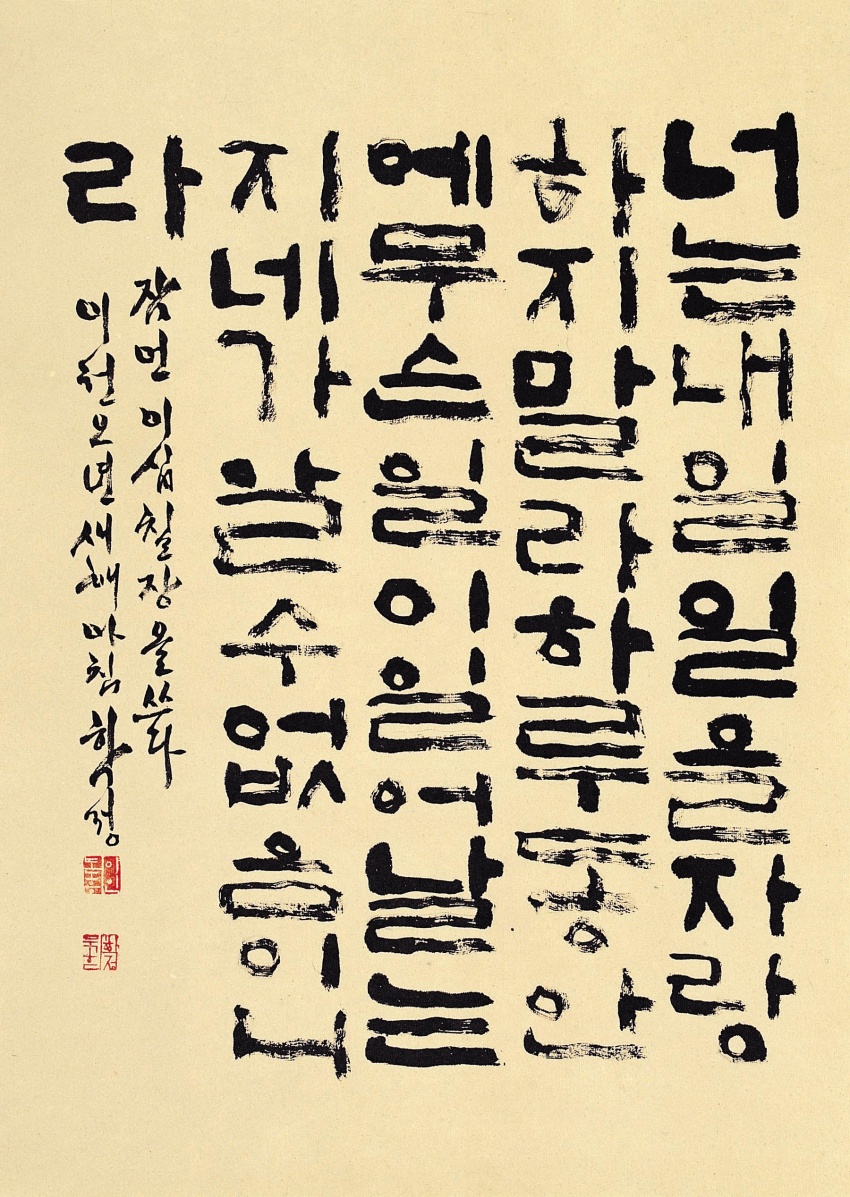 너는내일일을자랑
하지말라하루동안
에무슨일이일어날는
지네가알수없음이니
라
잠언이십칠장을쓰다
이천오년새해아침학정